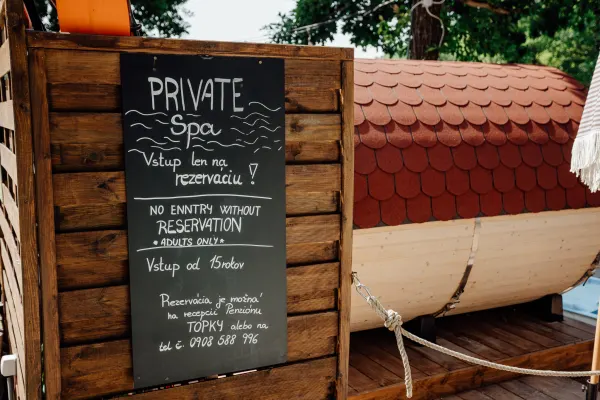 PRIVATE
Spa
Vstup len na
rezerváciu!
NO ENNTRY WITHOUT
RESERVATION
• ADULTS ONLY •
Vstup od 15 rokov
Rezervácia je možná
na recepcií Penziónu
TOPKY alebo na
tel č. 0908 588 996